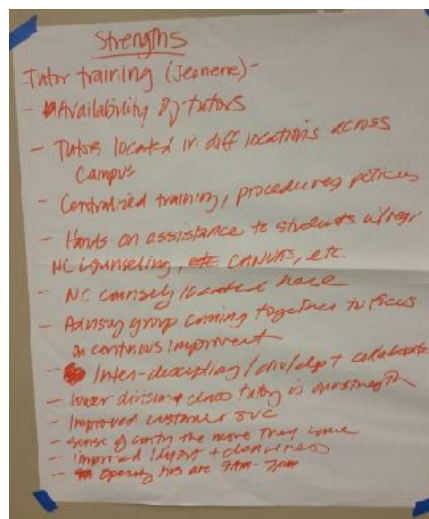 Strengths
Tutor training (Jeonene) -
- Availability of tutors
- Tutors located in diff locations across
Campus
- Centralized training, procedures, policies
- Hands on assistance to students w/regi
NC counseling, etc. CANVAS, etc.
- NC counselg located here
- Advisory group coming together to focus
on continuous improvement
- Inter-discipling/div/dept collaborate
- lower division class tutoring is our strength
- Improved customer svc
- sense of comty the more they come
- improved layout + cleanliness
- Opening hrs are 9AM - 7pm